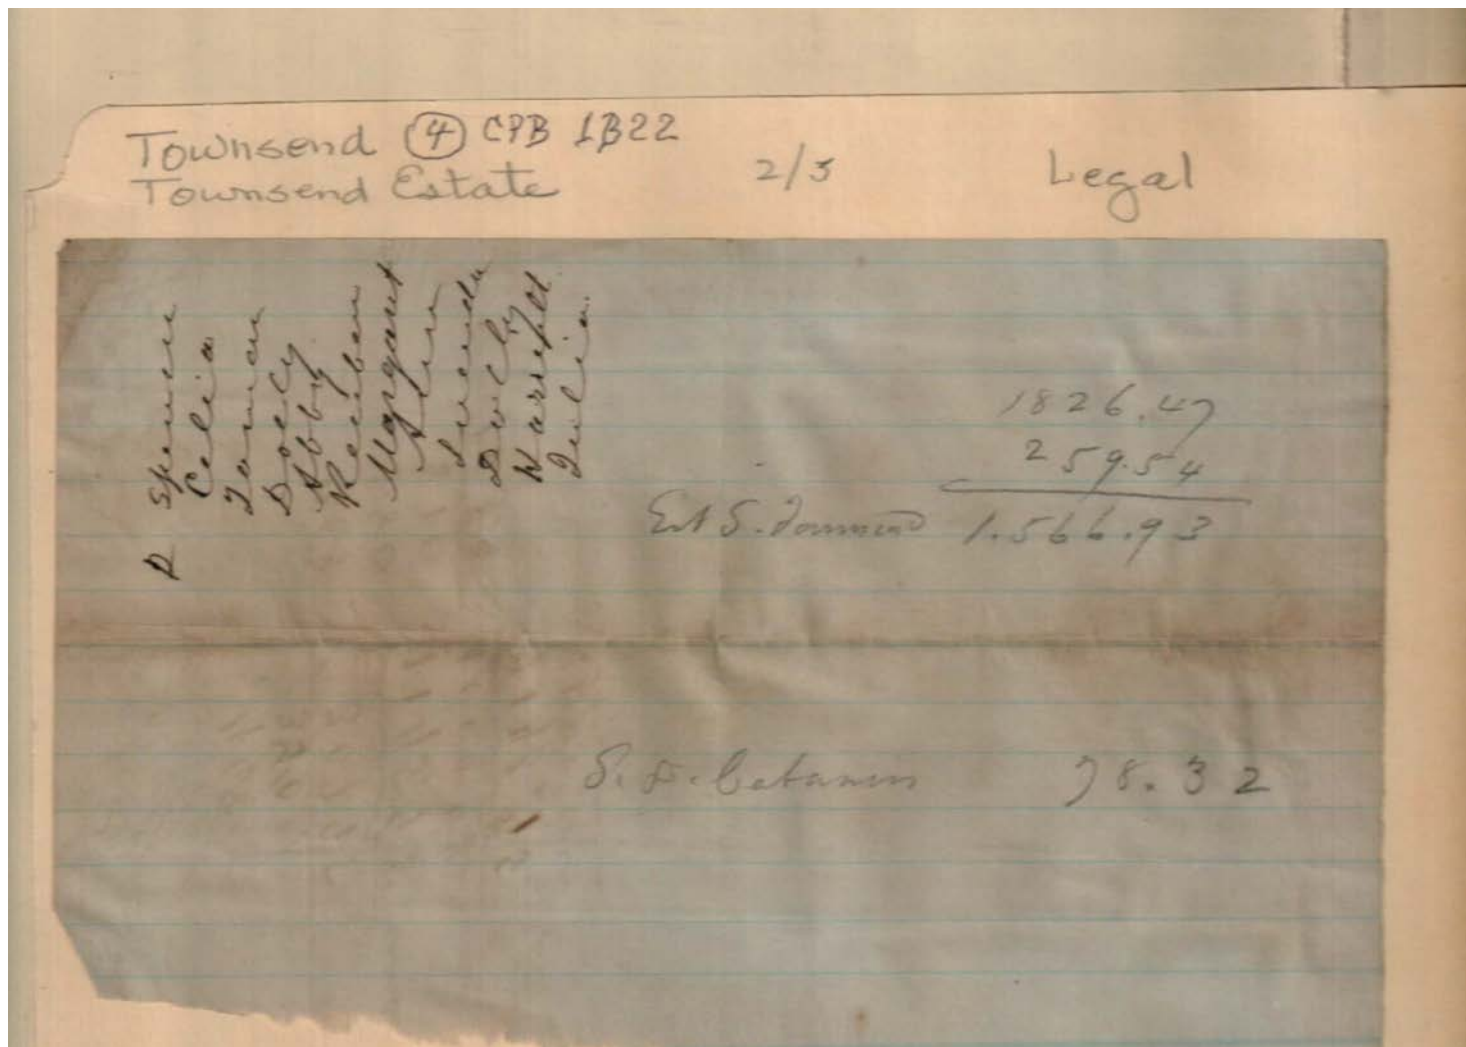 Townsend ④ CPB 1B22
Townsend Estate
2/3
Legal
D Spencer
Celia
Docly
Abby
Reuben
Margaret
Ann
Lucinda
Harriett
Julia
1826.47
259.54
Est S. Townsend 1.566.93
S. D. Cabaniss 78.32